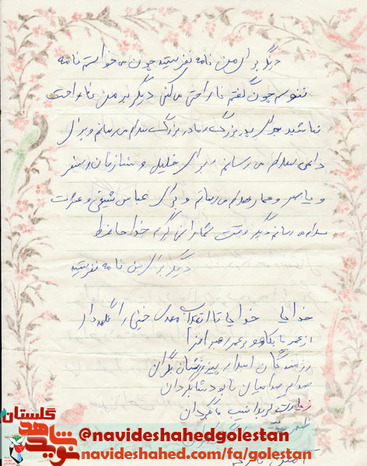 دیگر برای من نامه نفرستید چون می خواستم نامه
ننویسم چون گفتم ناراحتی می کنی دیگر برمن ناراحت
نباشید برای پدر بزرگ و مادر بزرگ سلام می رسانم و برای
دایی سلام می رسانم برای خلیل و
و یاسر و سلام می رسانم و برای عباس شیخی و
سلام می رسانم دیگر وقت شما را نمی گیرم خدا حافظ
دیگر برای من نامه نفرستید
خدایا خدایا تا انقلاب مهدی خمینی را نگهدار
از عمر ما بکاه و بر عمر او افزا
رزمندگان اسلام پیروزشان بگردان
صدام صدامیان نابودشان بگردان
زیارت کربلا نصیب ما بگردان
نوید شاهد گلستان
@navideshahedgolestan
navideshahed.com/fa/golestan